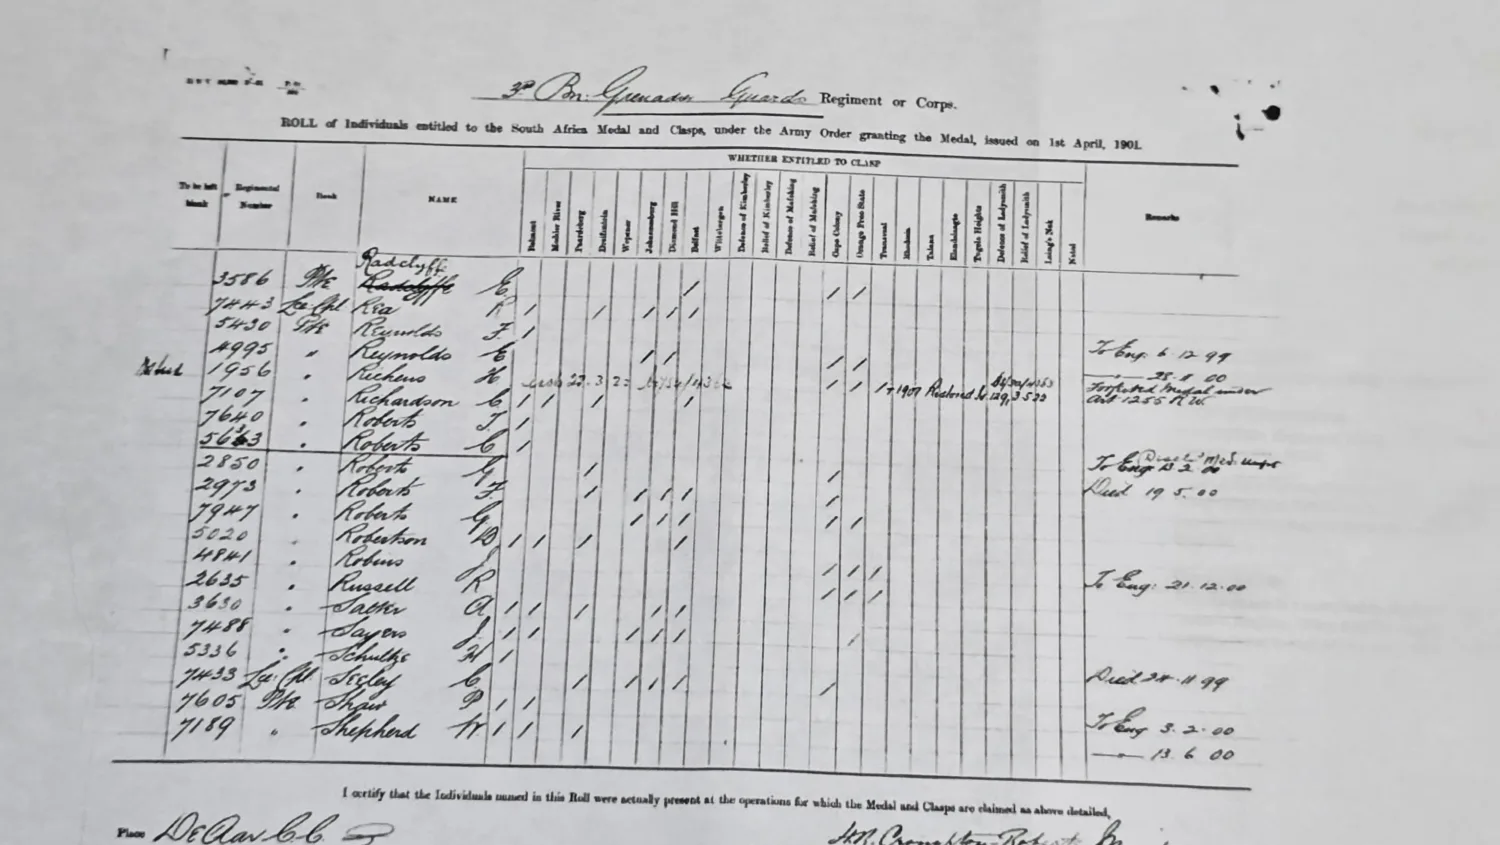 3rd Bn. Grenadier Guards Regiment or Corps.
ROLL of Individuals entitled to the South Africa Medal and Clasps, under the Army Order granting the Medal, issued on 1st April, 1901.
WHETHER ENTITLED TO CLASP
To be left blank Regimental Number Rank NAME Belmont Modder River Paardeberg Driefontein Wepener Johannesburg Diamond Hill Belfast Wittebergen Defence of Kimberley Relief of Kimberley Defence of Mafeking Relief of Mafeking Cape Colony Orange Free State Transvaal Rhodesia Talana Elandslaagte Tugela Heights Defence of Ladysmith Relief of Ladysmith Laing's Nek Natal Remarks
Radclyffe
3586 Pte Radclyffe E / / /
7443 Lce Cpl Rea R / / / / /
5430 Pte Reynolds F. /
4995 " Reynolds E / / / / To Eng. 6.12.99
1956 " Richens H / / 25.11.00
7107 " Richardson C / / / / 1907 Restored Forfeited Medal under Art 1255 R.W.
7640 " Roberts T /
5663 " Roberts C /
2850 " Roberts G / / To Eng. 2 00
2973 " Roberts F. / / / / / Died 19.5.00
7947 " Roberts G / / / / /
5020 " Robertson D / / / /
4841 " Robins J / / /
2635 " Russell R / / / To Eng: 21.12.00
3630 " Sacker A / / / / /
7488 " Sayers J. / / / / / /
5336 " Schultze H /
7433 Lce Cpl Seeley C / / / / / Died 24.11.99
7605 Pte Shaw P / /
7189 " Shepherd W / / / To Eng 3.2.00
13.6.00
I certify that the Individuals named in this Roll were actually present at the operations for which the Medal and Clasps are claimed as above detailed,
Place De Aar C.C.